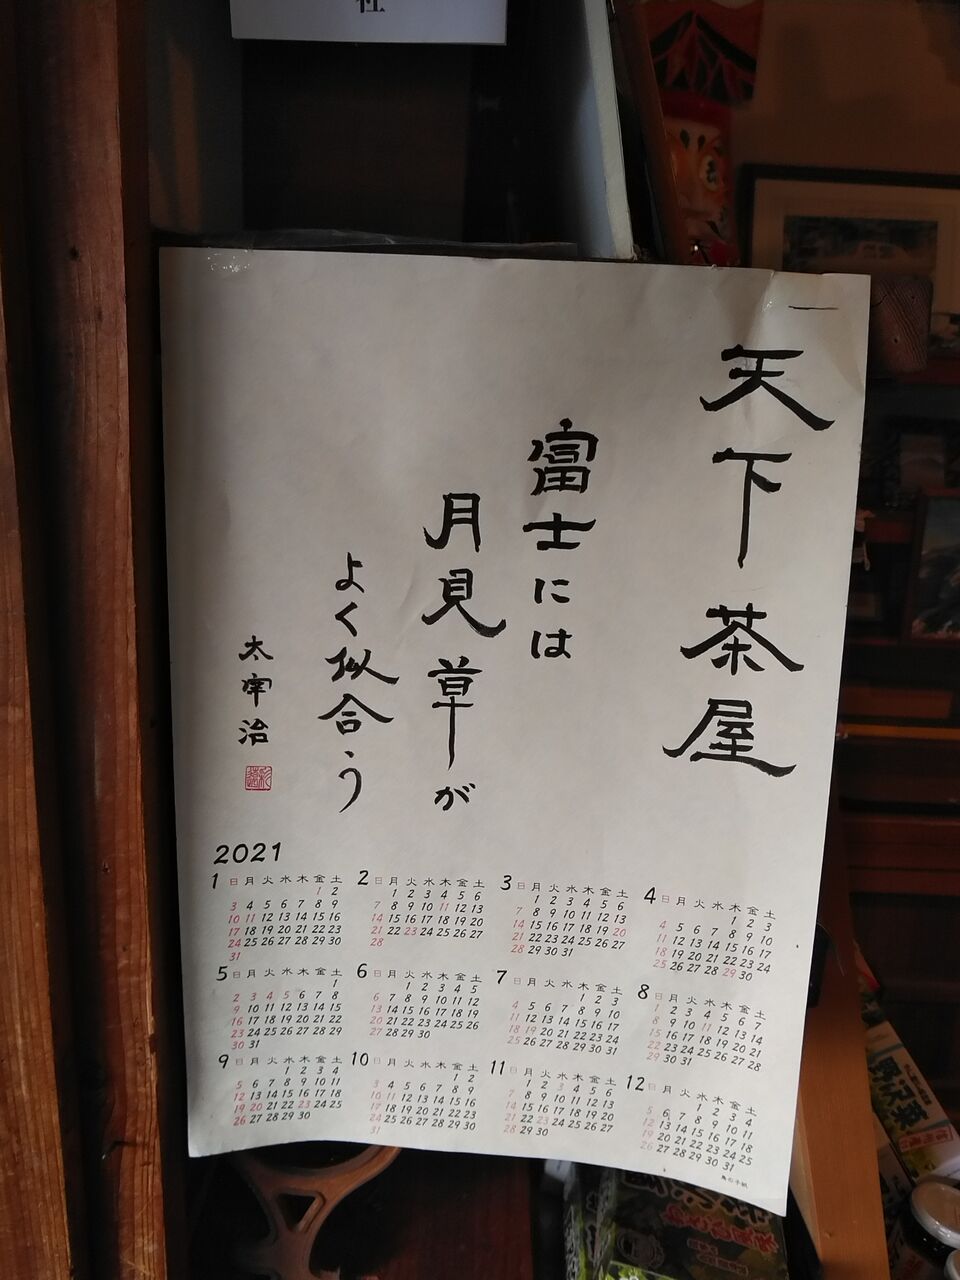 社
天下茶屋
富士には
月見草が
よく似合う
太宰治
2021
1
日 月 火 水 木 金 土
1 2
3 4 5 6 7 8 9
10 11 12 13 14 15 16
17 18 19 20 21 22 23
24 25 26 27 28 29 30
31
2
日 月 火 水 木 金 土
1 2 3 4 5 6
7 8 9 10 11 12 13
14 15 16 17 18 19 20
21 22 23 24 25 26 27
28
3
日 月 火 水 木 金 土
1 2 3 4 5 6
7 8 9 10 11 12 13
14 15 16 17 18 19 20
21 22 23 24 25 26 27
28 29 30 31
4
日 月 火 水 木 金 土
1 2 3
4 5 6 7 8 9 10
11 12 13 14 15 16 17
18 19 20 21 22 23 24
25 26 27 28 29 30
5
日 月 火 水 木 金 土
1
2 3 4 5 6 7 8
9 10 11 12 13 14 15
16 17 18 19 20 21 22
23 24 25 26 27 28 29
30 31
6
日 月 火 水 木 金 土
1 2 3 4 5
6 7 8 9 10 11 12
13 14 15 16 17 18 19
20 21 22 23 24 25 26
27 28 29 30
7
日 月 火 水 木 金 土
1 2 3
4 5 6 7 8 9 10
11 12 13 14 15 16 17
18 19 20 21 22 23 24
25 26 27 28 29 30 31
8
日 月 火 水 木 金 土
1 2 3 4 5 6 7
8 9 10 11 12 13 14
15 16 17 18 19 20 21
22 23 24 25 26 27 28
29 30 31
9
日 月 火 水 木 金 土
1 2 3 4
5 6 7 8 9 10 11
12 13 14 15 16 17 18
19 20 21 22 23 24 25
26 27 28 29 30
10
日 月 火 水 木 金 土
1 2
3 4 5 6 7 8 9
10 11 12 13 14 15 16
17 18 19 20 21 22 23
24 25 26 27 28 29 30
31
11
日 月 火 水 木 金 土
1 2 3 4 5 6
7 8 9 10 11 12 13
14 15 16 17 18 19 20
21 22 23 24 25 26 27
28 29 30
12
日 月 火 水 木 金 土
1 2 3 4
5 6 7 8 9 10 11
12 13 14 15 16 17 18
19 20 21 22 23 24 25
26 27 28 29 30 31
野沢菜